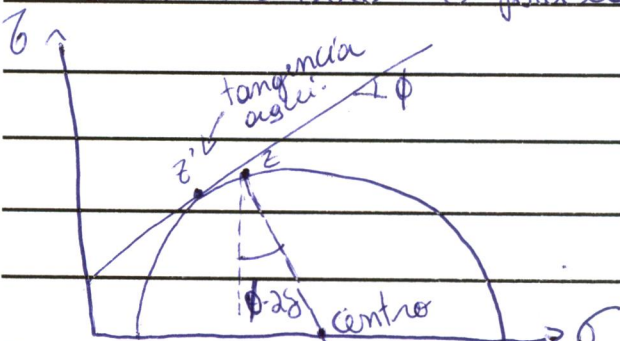 τ
tangencia
aqui.
ϕ
z'
z
ϕ-2δ
centro
σ